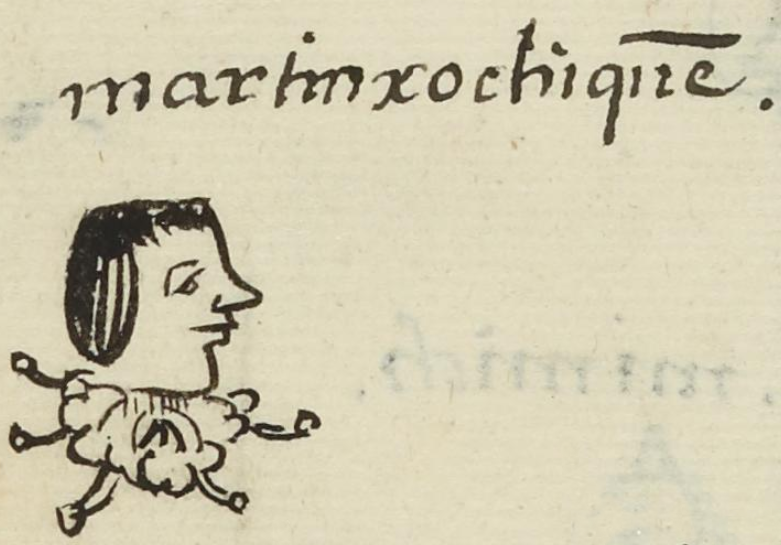 martin xochiquē.